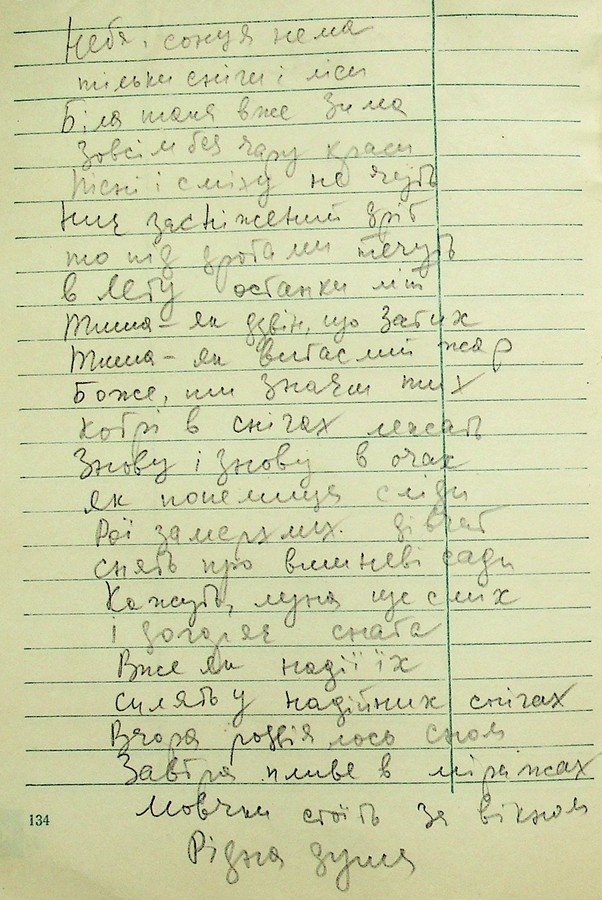 Неба, сонця нема
тільки сніги і ліси
Біла    вже зима
Зовсім без чару краси
Пісні і сміху не чуть
Ще засніжений дріт
то під дротами течуть
в Лету останки літ
Тиша – як дзвін, що затих
Тиша – як    жар
Боже, ти знаєш тих
Котрі в снігах лежать
Знову і знову в очах
як попелища сліди
Рої замерхлих дівчат
снять про вишневі сади
Кажуть, луна ще сміх
і догоряє
Вже як надії їх
сплять у надійних снігах
Вчора розвіялось сном
Завтра пливе в міражах
134
Мовчки стоїть за вікном
Рідна душа